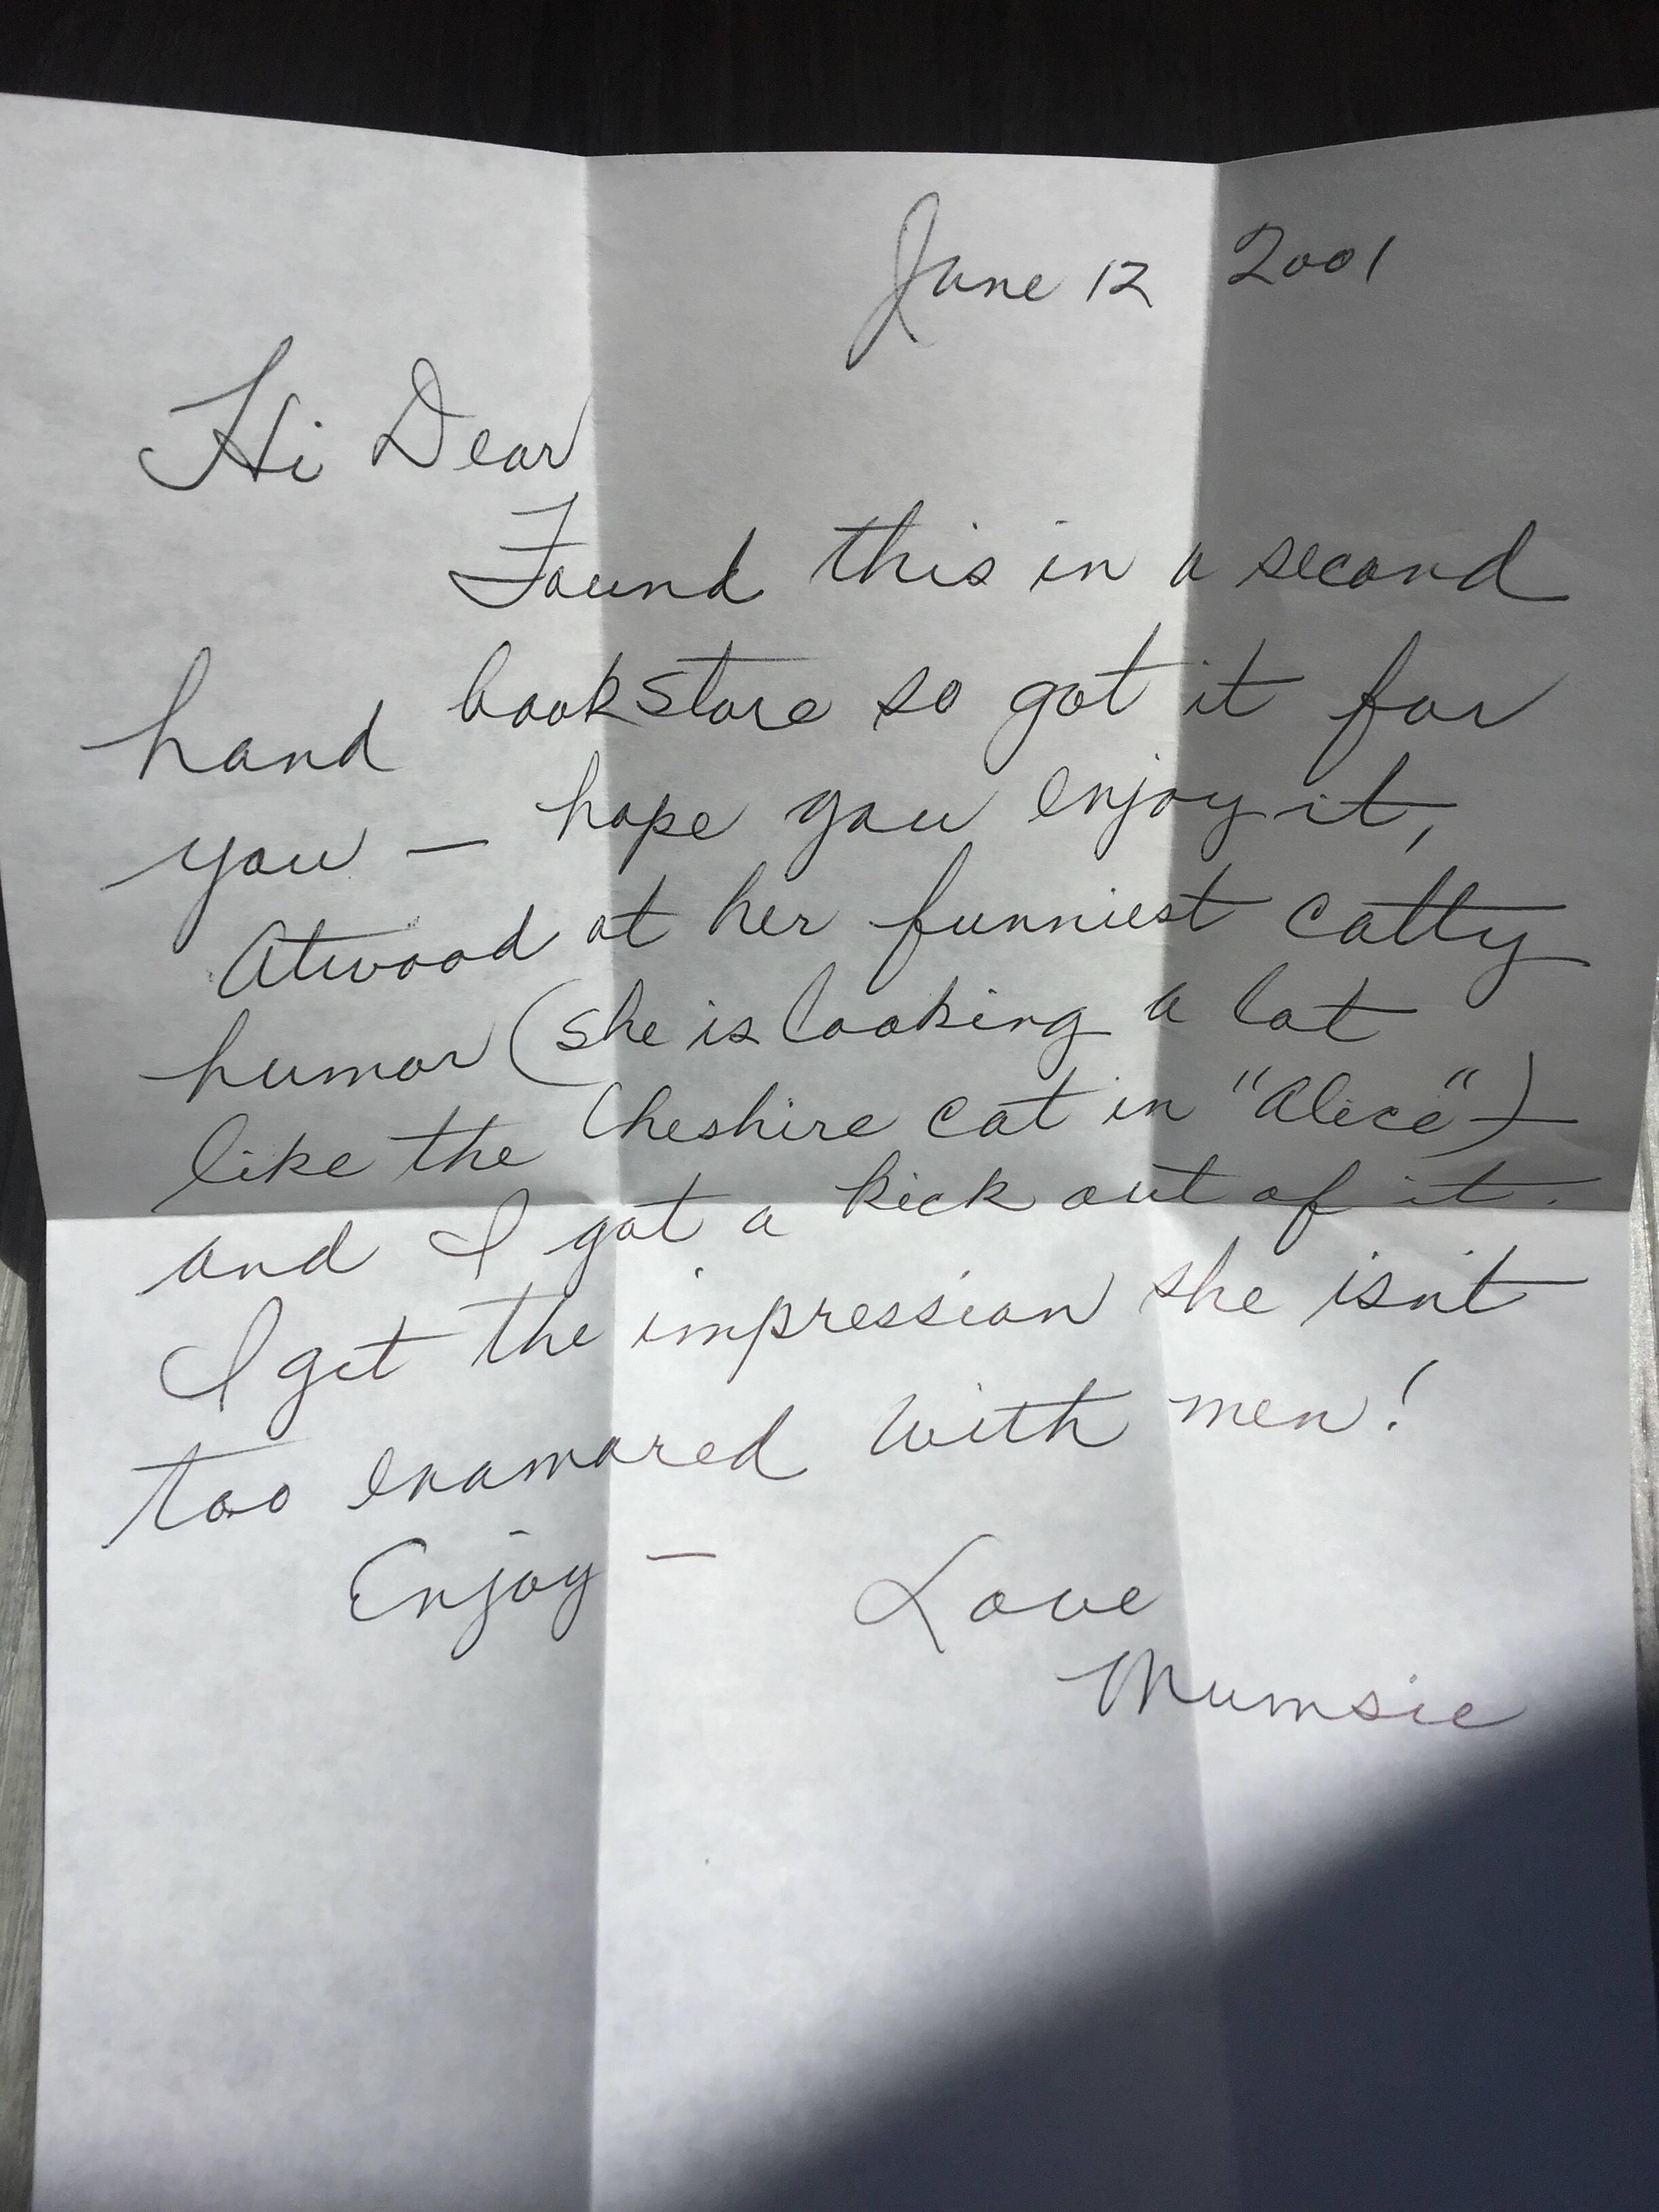 June 12 2001
Hi Dear
Found this in a second
hand bookstore so got it for
you — hope you enjoy it,
Atwood at her funniest catty
humor (she is looking a lot
like the Cheshire cat in "Alice")
and I got a kick out of it.
I get the impression she isn't
too enamored with men!
Enjoy — Love
Mumsie